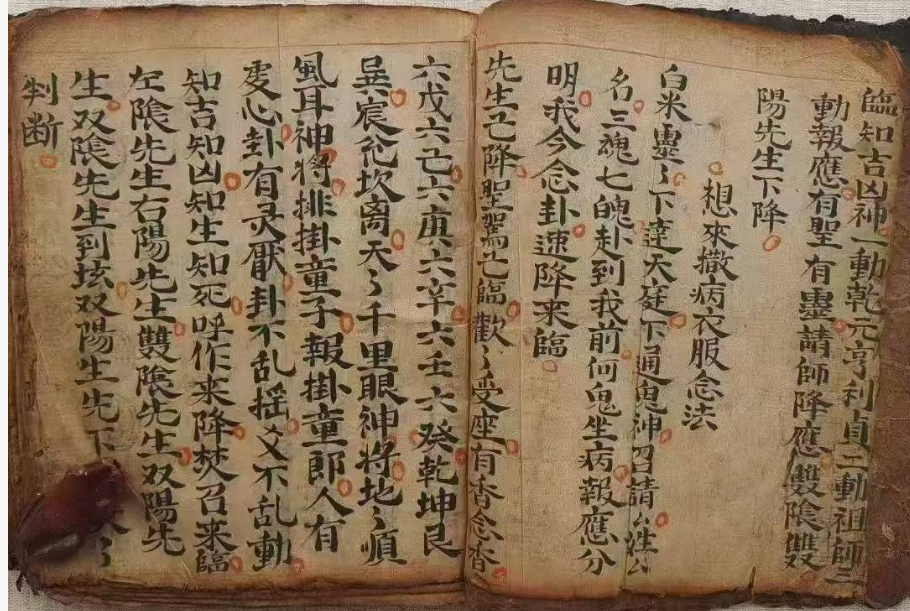 臨知吉凶神一動乾元亨利貞二動祖師三
動報應有聖有靈請師降應雙陰雙
陽先生下降
想來撒病衣服念法
白米靈〻下達天庭下通鬼神召請厶姓厶
名三魂七魄赴到我前何鬼坐病報應分
明我今念卦速降来臨
先生已降聖駕已臨歡〻受座有香念香
六戊六己六庚六辛六壬六癸乾坤艮
巽宸兊坎离天〻千里眼神将地〻順
風耳神将排掛童子報掛童郎人有
虔心卦有灵厭卦不乱摇爻不乱動
知吉知凶知生知死呼作来降焚召来臨
左陰先生右陽先生雙陰先生双陽先
生双陰先生到垓双陽生先下
判断